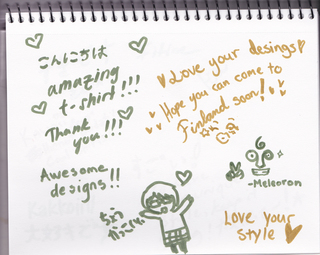 こんにちは
amazing
t-shirt!!!
Thank
you!!!
Awesome
designs!!
Love your desings
Hope you can come to
Finland soon!
-Meleoron
ちょう
かっこいい
Love your
style